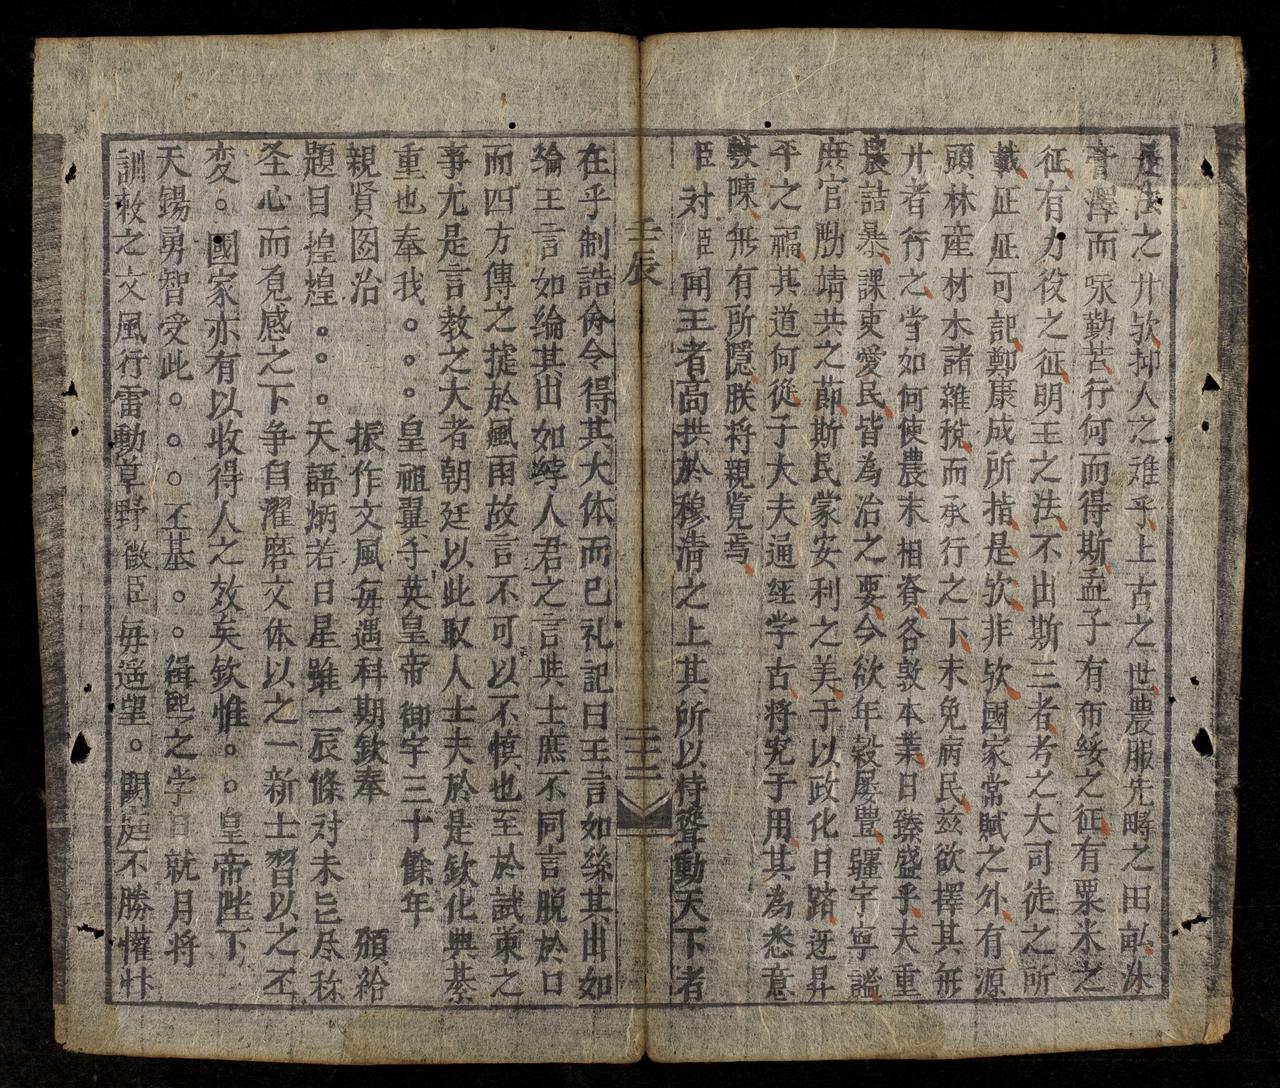 之廾欤抑人之难乎上古之世農服先時之田畝沐
膏澤而永勤苦行何而得斯孟子有布綏之征有粟米之
征有力役之征明王之法不出斯三者考之大司徒之所
載征征可記鄭康成所指是欤非欤國家常賦之外有源
頭林産材木諸雜稅而承行之下未免病民茲欲擇其無
廾者行之当如何使農末相資各敦本業日臻盛乎夫重
農詰暴課吏愛民皆為治之要今欲年穀屡豊疆宇寧謐
庶官励靖共之節斯民蒙安利之美于以政化日路迓昇
平之福其道何從子大夫通經学古将究于用其為悉意
敦陳無有所隱朕将親覧焉
臣对臣聞王者高拱於穆清之上其所以特聳動天下者
壬辰
三三
在乎制誥命令得其大体而已礼記曰王言如絲其出如
綸王言如綸其出如綍人君之言典士庶不同言脱於口
而四方傳之㨗於風雨故言不可以不慎也至於試策之
事尤是言教之大者朝廷以此取人士夫於是欽化典綦
重也奉我。。。皇祖翼子英皇帝御宇三十餘年
親賢图治 振作文風每遇科期欽奉 頒給
題目煌煌。。。天語炳若日星雖一辰條对未㫖尽称
圣心而覓感之下争自濯磨文体以之一新士習以之丕
变。國家亦有以收得人之效矣欽惟。。皇帝陛下
天錫勇智受此。。。丕基。。緝熙之学日就月将
訓敕之文風行雷動草野微臣每遥望。闕庭不勝懽忭